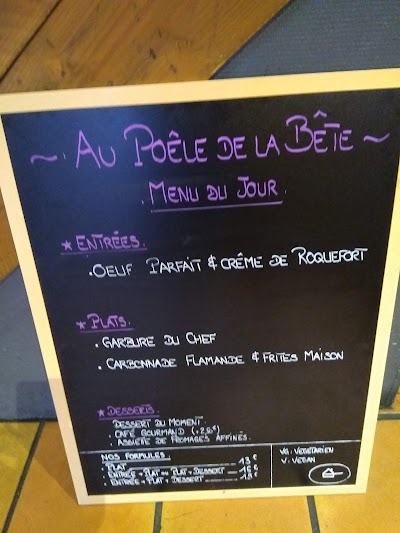 ~ AU POÊLE DE LA BÊTE ~
MENU DU JOUR.
★ ENTRÉES.
. OEUF PARFAIT & CRÉME DE ROQUEFORT
★ PLATS.
. GARBURE DU CHEF
. CARBONNADE FLAMANDE & FRITES MAISON
★ DESSERTS.
. DESSERT DU MOMENT.
. CAFÉ GOURMAND (+2€)
. ASSIETTE DE FROMAGES AFFINÉS.
NOS FORMULES
PLAT 13€
ENTRÉE + PLAT OU PLAT + DESSERT 16€
ENTRÉE + PLAT + DESSERT
VG: VEGETARIEN
V: VEGAN